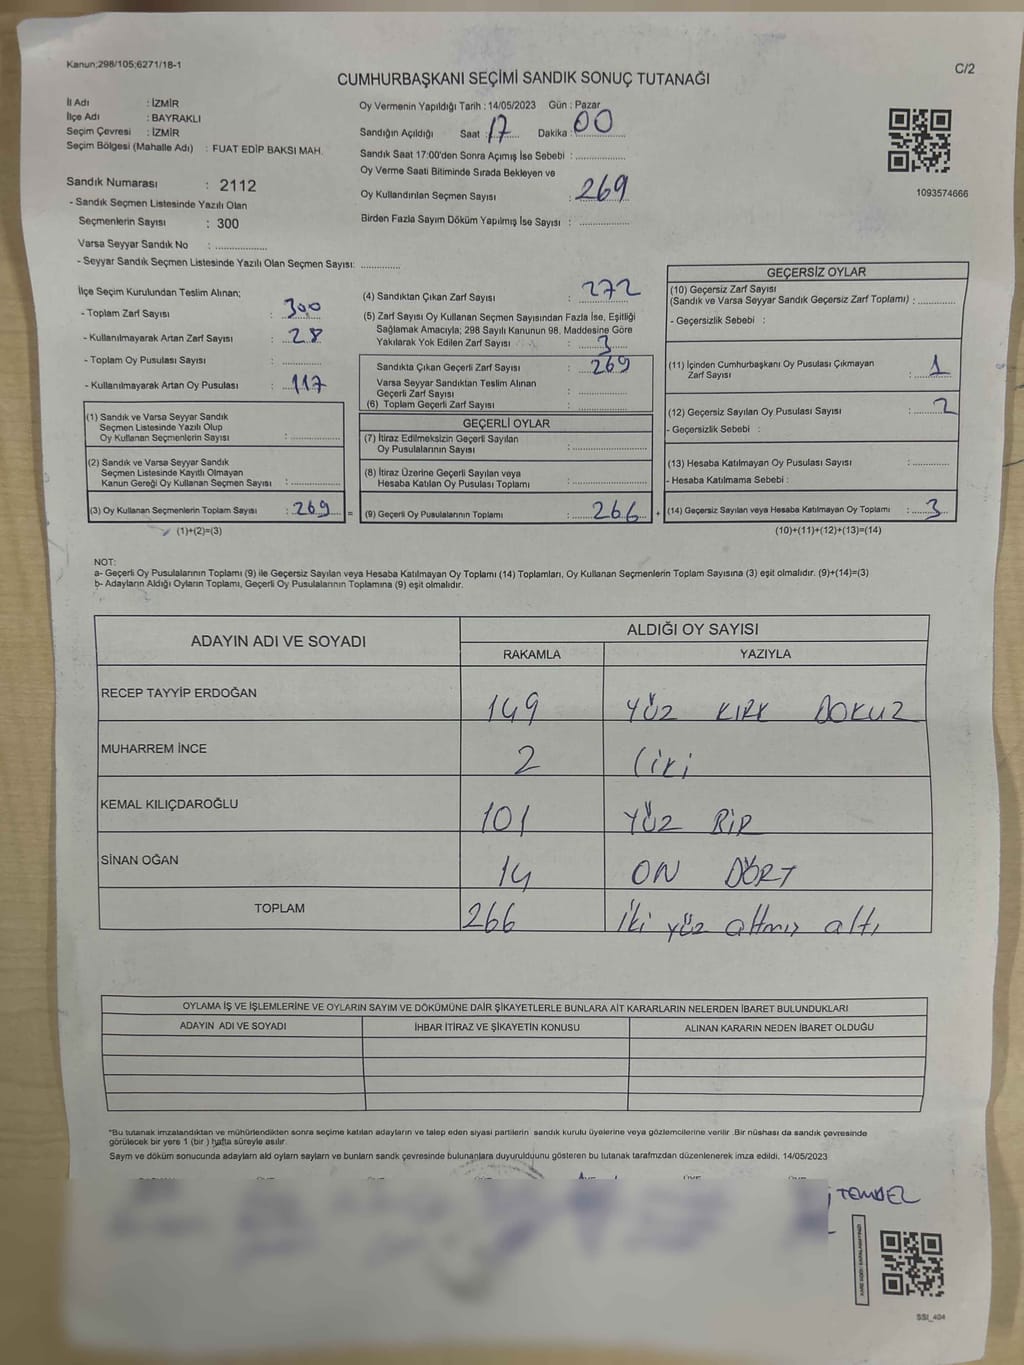 Kanun;298/105;6271/18-1
C/2
CUMHURBAŞKANI SEÇİMİ SANDIK SONUÇ TUTANAĞI
İl Adı : İZMİR
İlçe Adı : BAYRAKLI
Seçim Çevresi : İZMİR
Seçim Bölgesi (Mahalle Adı) : FUAT EDİP BAKSI MAH.
Sandık Numarası : 2112
- Sandık Seçmen Listesinde Yazılı Olan
Seçmenlerin Sayısı : 300
Varsa Seyyar Sandık No : ................
- Seyyar Sandık Seçmen Listesinde Yazılı Olan Seçmen Sayısı: ............
Oy Vermenin Yapıldığı Tarih : 14/05/2023 Gün : Pazar
Sandığın Açıldığı Saat : 17 Dakika : 00
Sandık Saat 17:00'den Sonra Açımış İse Sebebi : ................
Oy Verme Saati Bitiminde Sırada Bekleyen ve
Oy Kullandırılan Seçmen Sayısı : 269
Birden Fazla Sayım Döküm Yapılmış İse Sayısı : ................
1093574666
İlçe Seçim Kurulundan Teslim Alınan;
- Toplam Zarf Sayısı : 300
- Kullanılmayarak Artan Zarf Sayısı : 28
- Toplam Oy Pusulası Sayısı : ............
- Kullanılmayarak Artan Oy Pusulası : 117
(1) Sandık ve Varsa Seyyar Sandık
Seçmen Listesinde Yazılı Olup
Oy Kullanan Seçmenlerin Sayısı : ................
(2) Sandık ve Varsa Seyyar Sandık
Seçmen Listesinde Kayıtlı Olmayan
Kanun Gereği Oy Kullanan Seçmen Sayısı : ................
(3) Oy Kullanan Seçmenlerin Toplam Sayısı : 269 =
(1)+(2)=(3)
(4) Sandıktan Çıkan Zarf Sayısı : 272
(5) Zarf Sayısı Oy Kullanan Seçmen Sayısından Fazla İse, Eşitliği
Sağlamak Amacıyla; 298 Sayılı Kanunun 98. Maddesine Göre
Yakılarak Yok Edilen Zarf Sayısı : 3
Sandıkta Çıkan Geçerli Zarf Sayısı : 269
Varsa Seyyar Sandıktan Teslim Alınan
Geçerli Zarf Sayısı : ................
(6) Toplam Geçerli Zarf Sayısı : ................
GEÇERLİ OYLAR
(7) İtiraz Edilmeksizin Geçerli Sayılan
Oy Pusulalarının Sayısı : ................
(8) İtiraz Üzerine Geçerli Sayılan veya
Hesaba Katılan Oy Pusulası Toplamı : ................
(9) Geçerli Oy Pusulalarının Toplamı : 266 +
GEÇERSİZ OYLAR
(10) Geçersiz Zarf Sayısı
(Sandık ve Varsa Seyyar Sandık Geçersiz Zarf Toplamı) : ............
- Geçersizlik Sebebi :
(11) İçinden Cumhurbaşkanı Oy Pusulası Çıkmayan
Zarf Sayısı : 1
(12) Geçersiz Sayılan Oy Pusulası Sayısı : 2
- Geçersizlik Sebebi :
(13) Hesaba Katılmayan Oy Pusulası Sayısı : ............
- Hesaba Katılmama Sebebi :
(14) Geçersiz Sayılan veya Hesaba Katılmayan Oy Toplamı : 3
(10)+(11)+(12)+(13)=(14)
NOT:
a- Geçerli Oy Pusulalarının Toplamı (9) ile Geçersiz Sayılan veya Hesaba Katılmayan Oy Toplamı (14) Toplamları, Oy Kullanan Seçmenlerin Toplam Sayısına (3) eşit olmalıdır. (9)+(14)=(3)
b- Adayların Aldığı Oyların Toplamı, Geçerli Oy Pusulalarının Toplamına (9) eşit olmalıdır.
ADAYIN ADI VE SOYADI ALDIĞI OY SAYISI
RAKAMLA YAZIYLA
RECEP TAYYİP ERDOĞAN 149 YÜZ KIRK DOKUZ
MUHARREM İNCE 2 (iki
KEMAL KILIÇDAROĞLU 101 YÜZ BİR
SİNAN OĞAN 14 ON DÖRT
TOPLAM 266 İki yüz altmış altı
OYLAMA İŞ VE İŞLEMLERİNE VE OYLARIN SAYIM VE DÖKÜMÜNE DAİR ŞİKAYETLERLE BUNLARA AİT KARARLARIN NELERDEN İBARET BULUNDUKLARI
ADAYIN ADI VE SOYADI İHBAR İTİRAZ VE ŞİKAYETİN KONUSU ALINAN KARARIN NEDEN İBARET OLDUĞU
*Bu tutanak imzalandıktan ve mühürlendikten sonra seçime katılan adayların ve talep eden siyasi partilerin sandık kurulu üyelerine veya gözlemcilerine verilir .Bir nüshası da sandık çevresinde
görülecek bir yere 1 (bir ) hafta süreyle asılır.
Sayım ve döküm sonucunda adayların ald oyların sayların ve bunların sandk çevresinde bulunanlara duyurulduunu gösteren bu tutanak tarafmzdan düzenlenerek imza edildi, 14/05/2023
TEMDEL
SSI_404